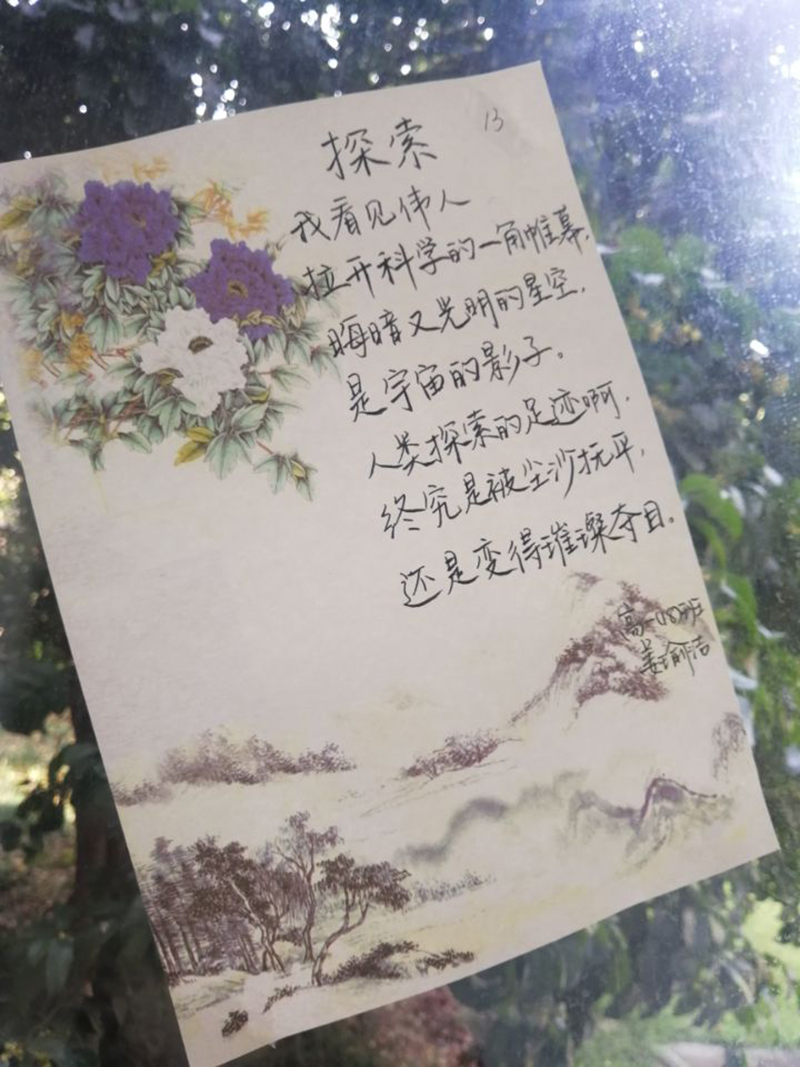 13
探索
我看见伟人
拉开科学的一角帷幕，
晦暗又光明的星空，
是宇宙的影子。
人类探索的足迹啊，
终究是被尘沙抚平，
还是变得璀璨夺目。
高一(8)班
姜瑜洁